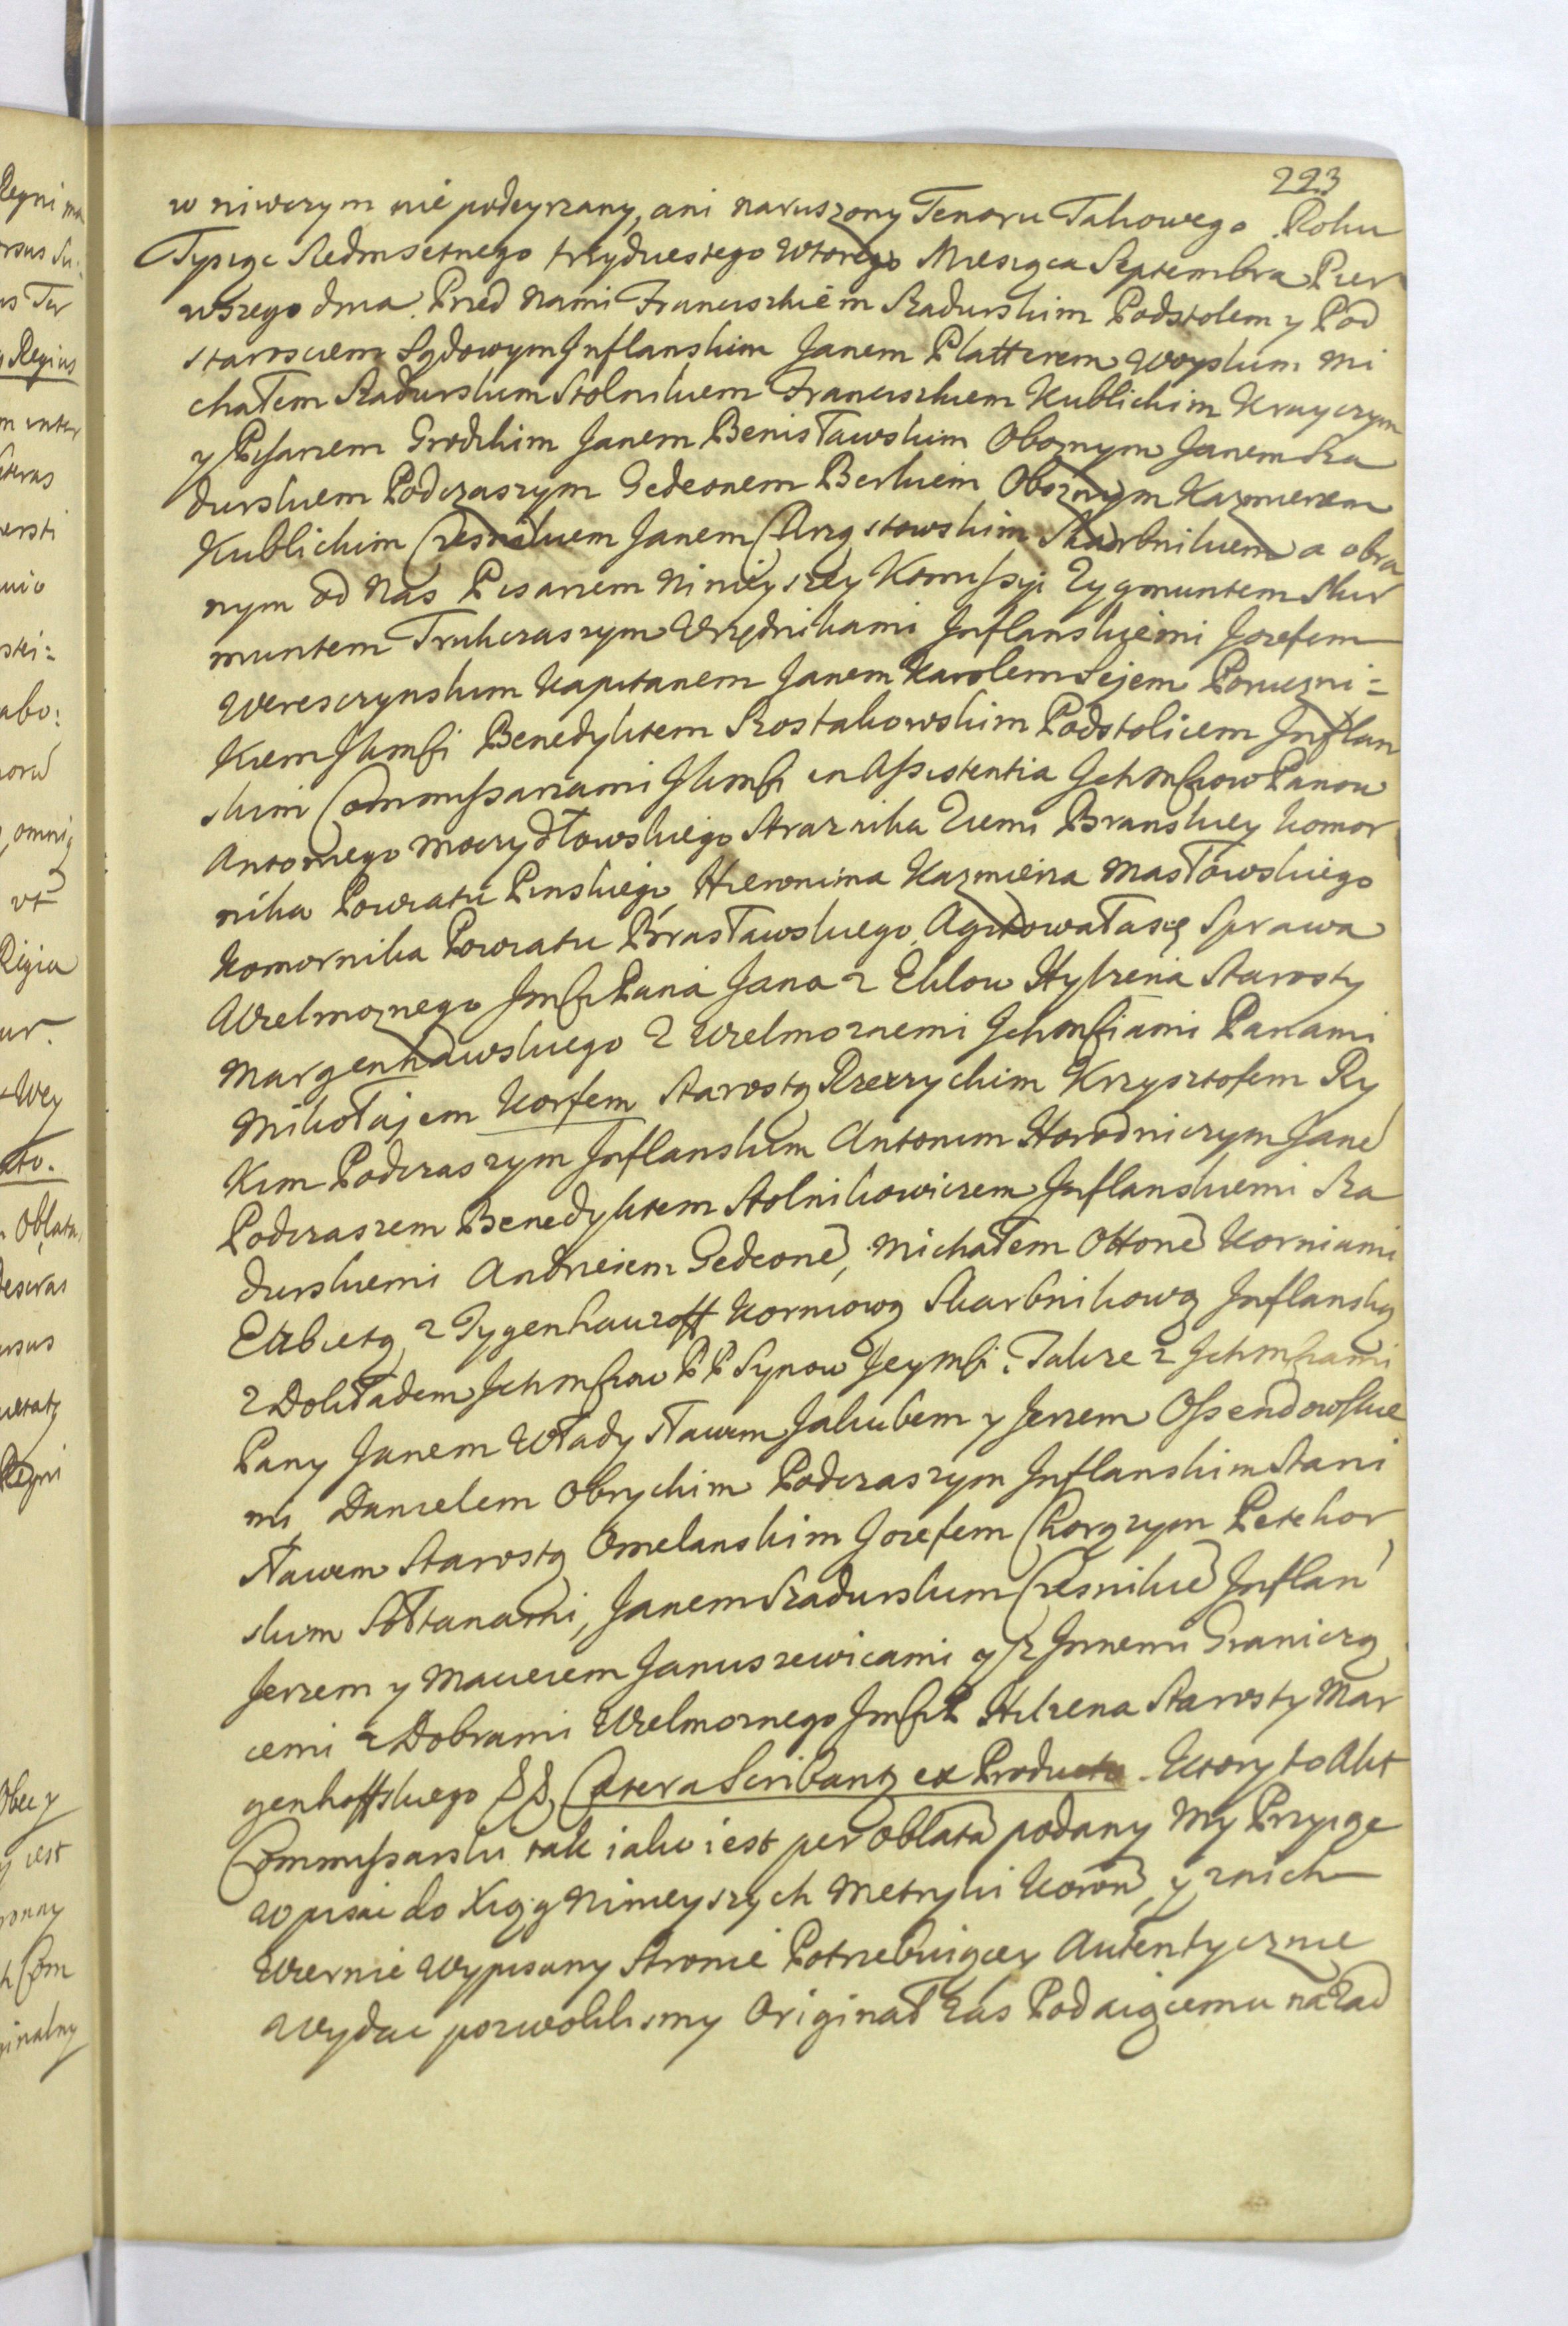 223
w niwczym nie podeyrzany, ani naruszony Tenoru Takowego. Roku
Tysiąc Siedmsetnego trzydziestego wtorego Miesiąca Septembra Pier
wszego dnia. Przed Nami Franciszkiem Szadurskim Podstolem y Pod
starosciem Sądowym Inflanskim Janem Platterem Woyskim Mi
chałem Szadurskim Stolnikiem Franciszkiem Kublickim Krayczym
y Pisarzem Grodzkim Janem Benisławskim Oboznym Janem Sza
durskiem Podczaszym Gedeonem Berkiem Oboznym Kazmierzem
Kublickim Czesnikiem Janem Chrząstowskim Skarbnikiem a obra
nym od Nas Pisarzem Ninieyszey Kommissyi Zygmuntem Skir
muntem Trukczaszym Urzędnikami Inflanskiemi Jozefem
Wereszczynskim Kapitanem Janem Karolem Sejem Poruczni=
Kiem JKmsci Benedyktem Szostakowskim Podstolicem Inflan
skim Commissarzami JKmsci in Assistentia Ichmsciow Panow
Antoniego Moczydłowskiego Straznika Ziemi Branskiey Komor
nika Powiatu Pinskiego, Hieronima Kazmierza Masłowskiego
Komornika Powiatu Brasławskiego, Agitowała się Sprawa
Wielmoznego Jmsci Pana Jana z Eklow Hylzena Starosty
Margenhawskiego z Wielmoznemi Ichmsciami Panami
Mikołajem Korfem Starostą Rzezyckim Krzysztofem Ry
Kim Podczaszym Inflanskim Antonim Horodniczym Jane
Podczaszem Benedyktem Stolnikowiczem Inflanskiemi Sza
durskiemi Andrzeiem Gedeone, Michałem Ottone Korniami
Elzbietą z Tyzenhauzoff Korniową Skarbnikową Inflanską
z Dokładem Ichmsciow PP Synow Jeymsci. Takze z Ichmsciami
Pany Janem Władysławem Jakubem y Jerzem Ossendowskie
mi, Danielem Obryckim Podczaszym Inflanskim Stani
sławem Starostą Omelanskim Jozefem Chorązym Petyhor
skim Sołtanami, Janem Szadurskim Czesnikie Inflan
Jerzem y Macieiem Januszewicami y z Innemi Graniczą
cemi z Dobrami Wielmoznego Jmsci P Hilzena Starosty Mar
genhoffskiego && Caetera Scribantq ex Producto. Ktory to Akt
Commissarski tak iako iest per oblatã podany My Przyiąc
w pisac do Xiąg Ninieyszych Metryki Koron y z nich
Wiernie Wypisany Stronie Potrzebuiącey Autentycznie
Wydac pozwolilismy Originał zas Podaiącemu nazad